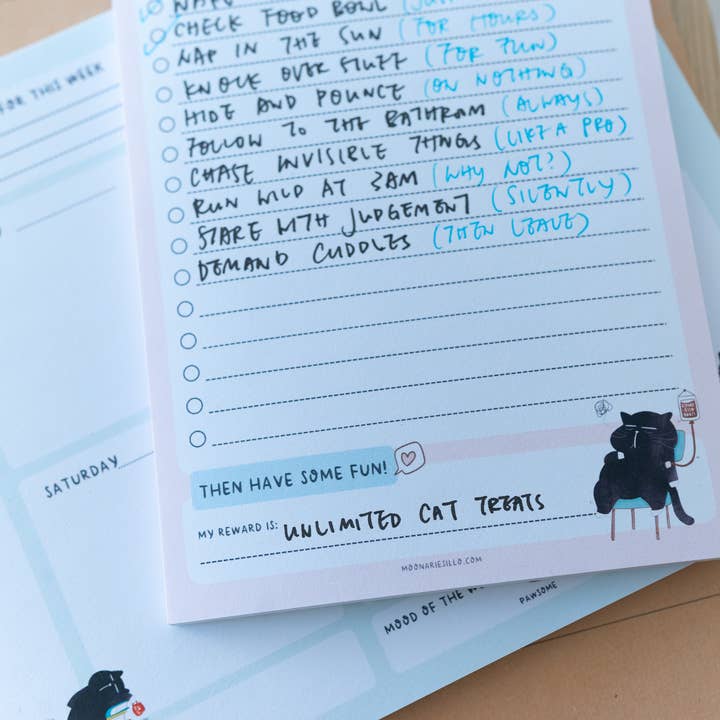 CHECK FOOD BOWL
NAP IN THE SUN (FOR HOURS)
KNOCK OVER STUFF (FOR FUN)
HIDE AND POUNCE (ON NOTHING)
FOLLOW TO THE BATHROOM (ALWAYS)
CHASE INVISIBLE THINGS (LIKE A PRO)
RUN WILD AT 3AM (WHY NOT?)
STARE WITH JUDGEMENT (SILENTLY)
DEMAND CUDDLES (THEN LEAVE)
THEN HAVE SOME FUN!
MY REWARD IS: UNLIMITED CAT TREATS
MOONARIESILLO.COM
FOR THIS WEEK
SATURDAY
MOOD OF THE
PAWSOME